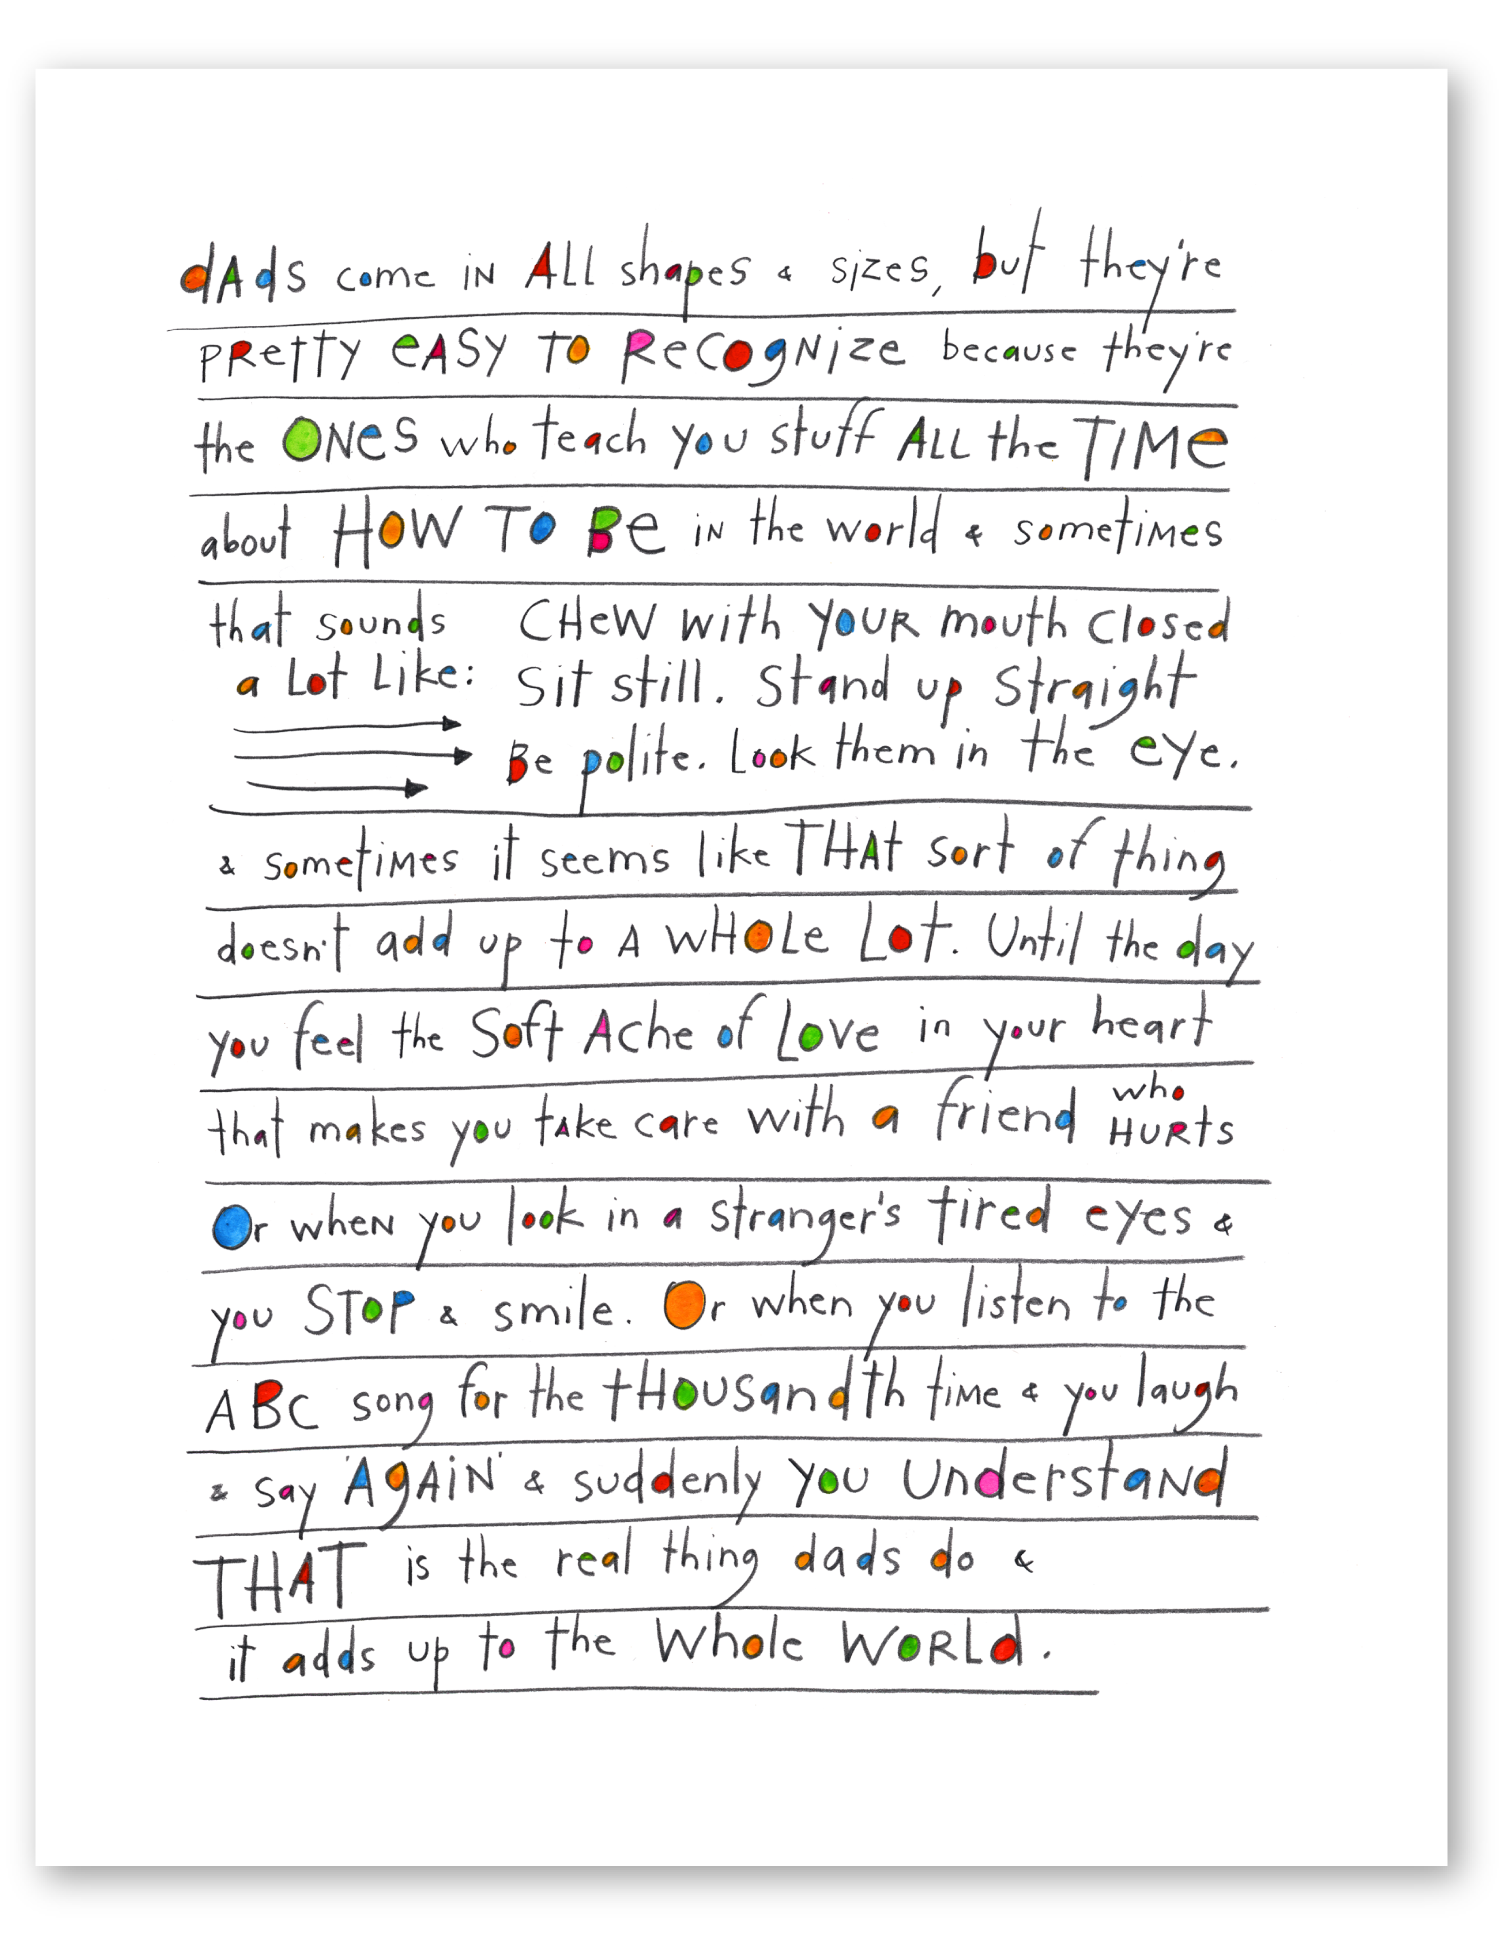 dAds come iN ALL shapes & sizes, but they're
PRettY eASY TO ReCOgNize because they're
the ONeS who teach you stuff ALL the TIMe
about HOW TO Be iN the world & sometiMes
that sounds CHeW with YOUR mouth Closed
a Lot Like: Sit still. Stand up Straight
Be polite. Look them in the eYe.
& sometiMes it seems like THAt sort of thing
doesn't add up to A WHOLe Lot. Until the day
you feel the Soft Ache of Love in your heart
that makes you tAke care with a friend who
HURts
Or wheN you look in a stranger's tired eyes &
you STOP & smile. Or when you listen to the
ABC song for the tHOUSandth time & you laugh
& say 'AgAiN' & suddenly you UnderstaNd
THAT is the real thing dads do &
it adds up to the Whole WORLd.